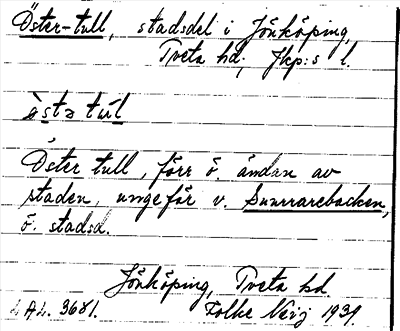 Öster-tull, stadsdel i Jönköping,
Tveta hd, Jkp:s l.
Öster tull, förr ö. ändan av
staden, ungefär v. Snurrarebacken,
ö. stadsd.
Jönköping, Tveta hd
L.A.L. 3681. Folke 1939.